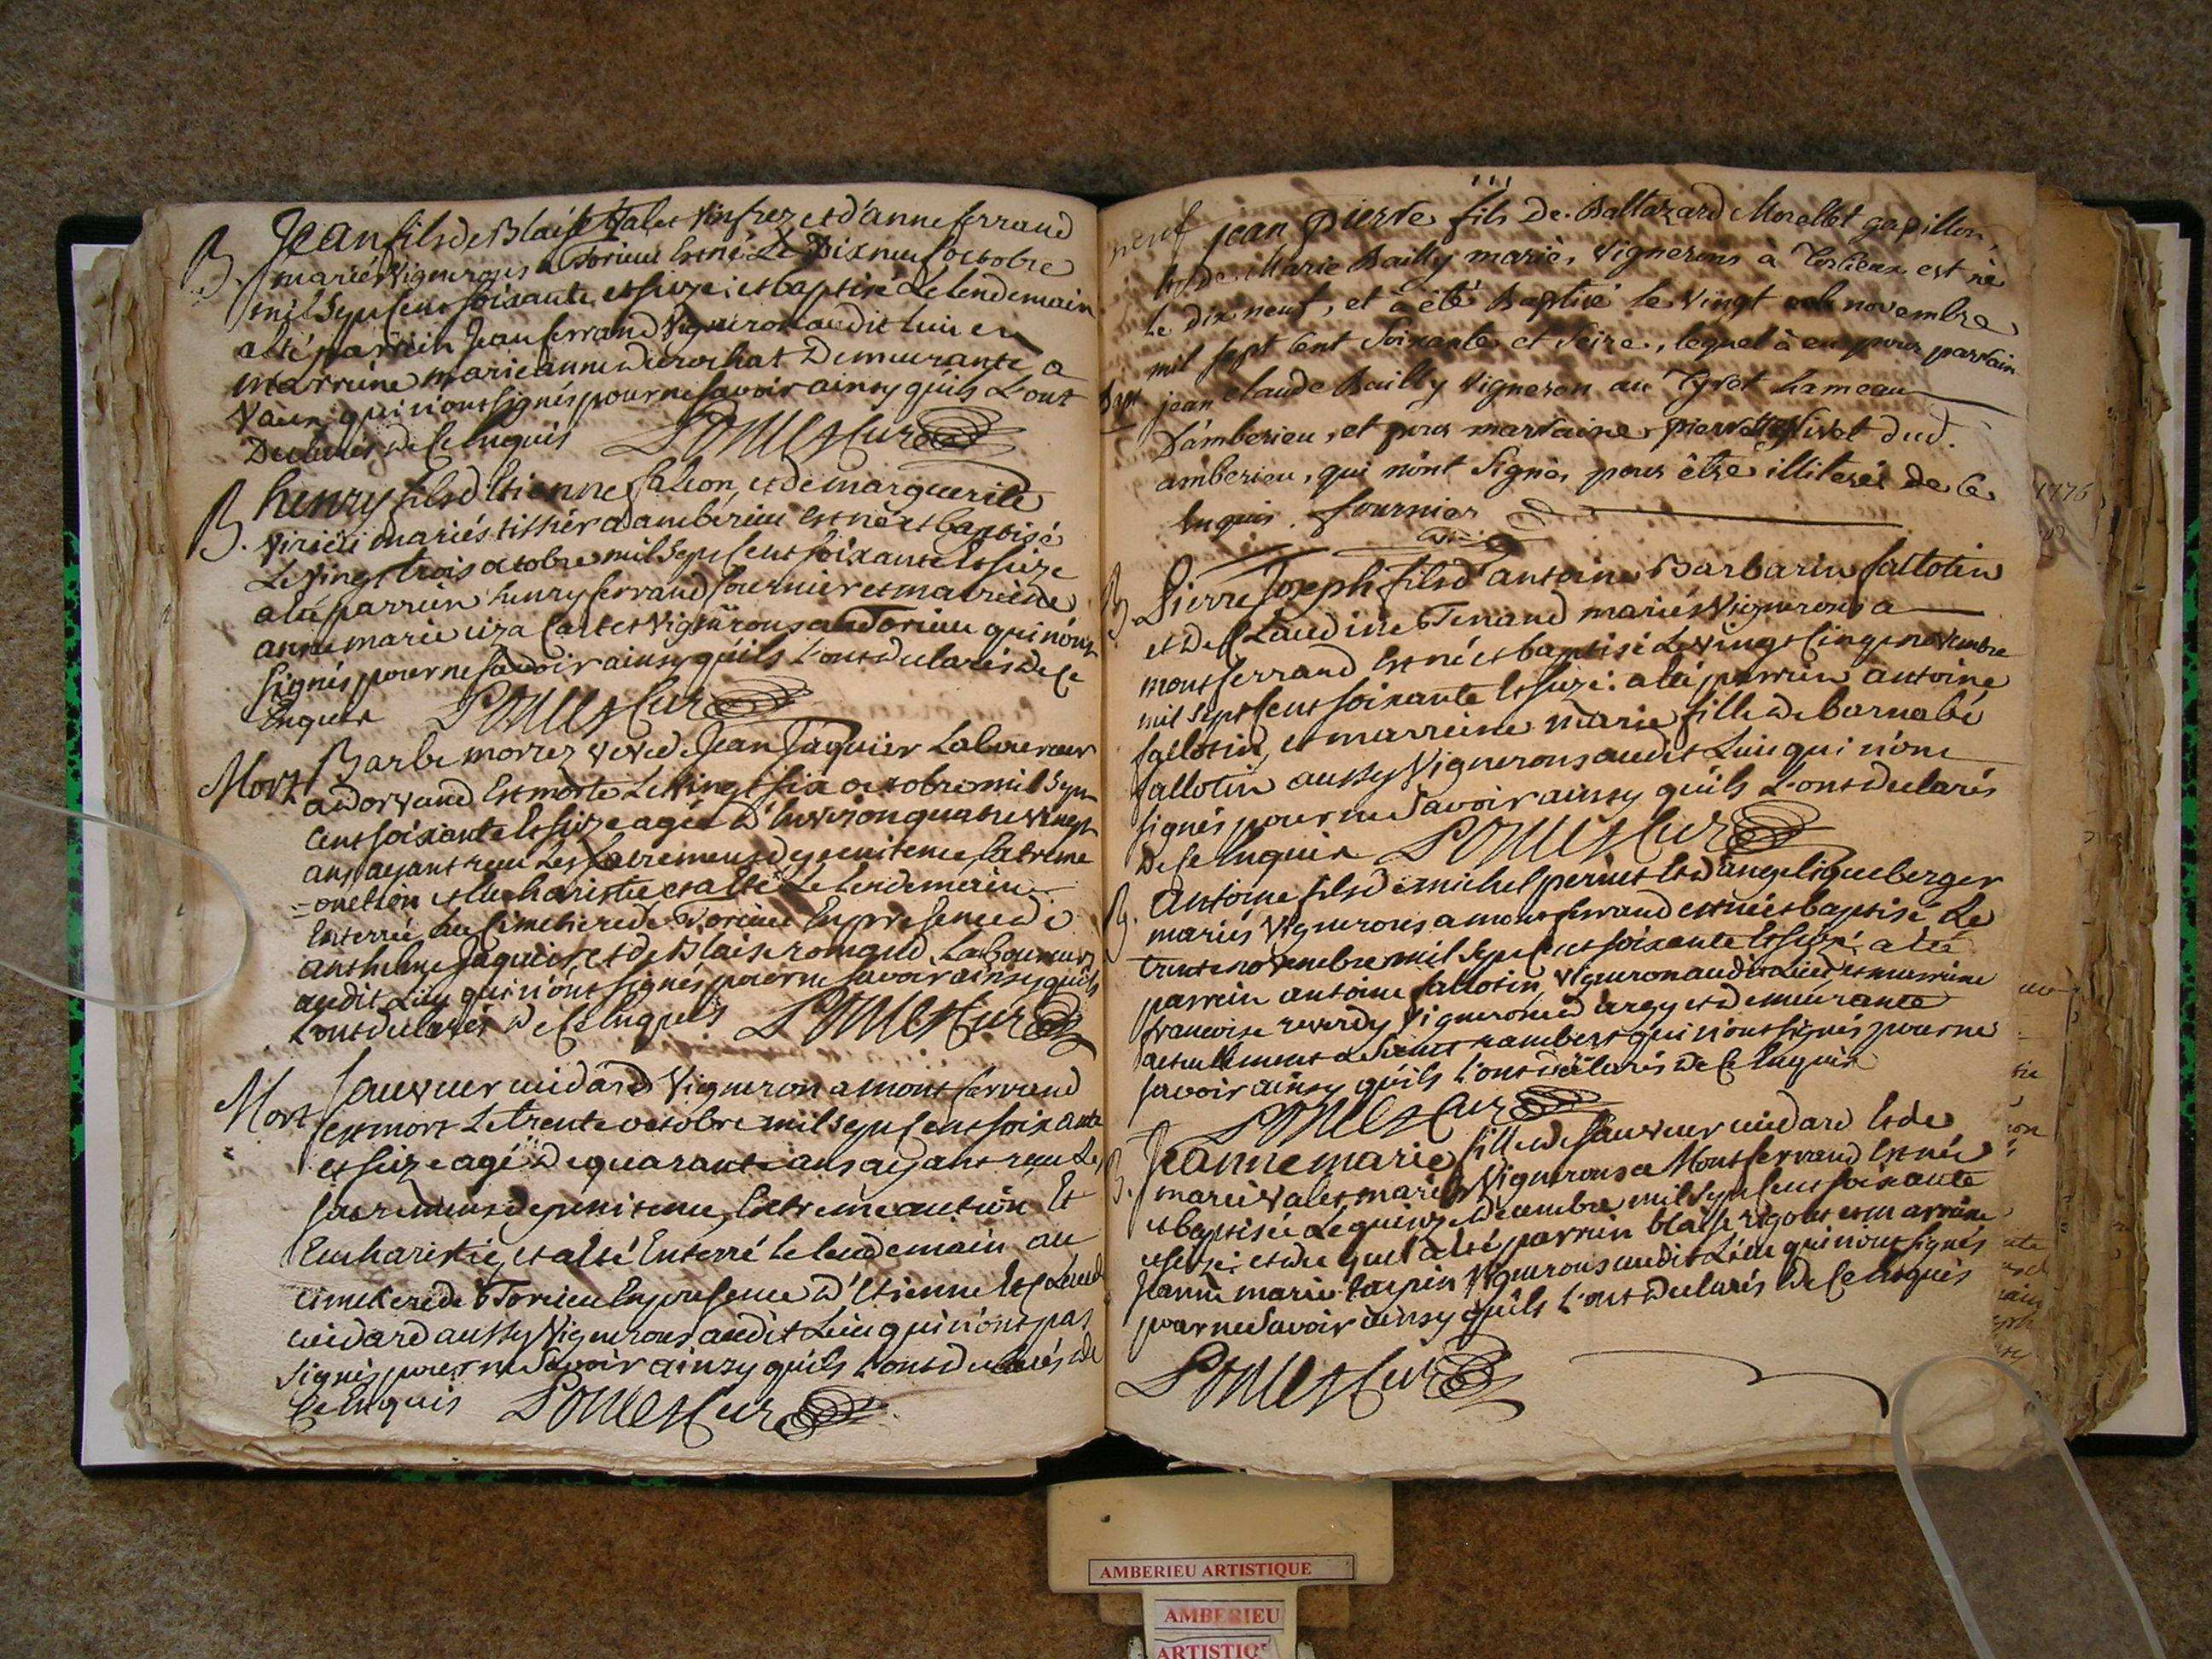 B. Jean fils de Blaise Valet Vinfrez et d'anne ferrand
mariés Vignerons a Torieu Est né Le Dix neuf octobre
mil Sept Cent soixante et seize: et baptisé Le lendemain
a été parrein Jean ferrand Vigneron audit Lieu et
marreine marie anne durochat Demeurante a
Vaux, qui n'ont signés pour ne savoir ainsy quils L'ont
Declarés de Ce Enquis
B. henry fils d'Etienne et de marguerite
mariés tissier a ambérieu est né et baptisé
Le Vingt trois octobre mil Sept Cent soixante Et seize
a été parrein henry ferrand fournier et marreine
anne marie Vignerons a Torieu qui n'ont
signés pour ne savoir ainsy quils L'ont declarés de Ce
Enquis
Mort Barbe morrez veve de Jean Jaquier Laboureur
a dorvand Est morte Le Vingt six octobre mil Sept
Cent soixante Et seize agée D'Environ quatre vingt
ans ayant reçu Les Sacremens de penitence Extreme
=onction et Eucharistie et a été Le lendemain
Enterrée au Cimetiere de Torieu En presence de
anthelme Jaquier et de Blaise Laboureurs
audit Lieu qui n'ont signés pour ne savoir ainsy quils
L'ont declarés de Ce Enquis
Mort Sauveur cuidard Vigneron a montferrand
est mort Le trente octobre mil Sept Cent soixante
et seize agé De quarante ans ayant reçu Les
sacremens de penitence, Extreme onction Et
Eucharistie, et a été Enterré le lendemain au
cimetiere de Torieu En presence D'Etienne Et Claude
cuidard aussy Vignerons audit Lieu qui n'ont pas
signés pour ne Savoir ainsy quils L'ont declarés de
Ce Enquis
jean pierre fils De Baltazard Morellet gapillon,
et de Marie Bailly mariés Vignerons à Torieux est né
le dix neuf, et à été Baptisé le vingt novembre
mil sept Cent Soixante et Seize, lequel à eu pour parrain
jean claude Bailly Vigneron au Tyret hameau
D'amberieu, et pour marraine pierrette dud.
amberieu, qui n'ont Signés pour être illiterés de ce
Enquis. fournier
B. Pierre Joseph fils d'antoine Barbarin fallotin
et de Claudine Tenand mariés Vignerons a
montferrand Est né et baptisé Le Vingt Cinq novembre
mil Sept Cent soixante Et seize: a été parrein antoine
fallotin, et marreine marie fille de Barnabé
fallotin aussy Vignerons audit Lieu qui n'ont
signés pour ne Savoir ainsy quils L'ont declarés
De Ce Enquis
B. Antoine fils de michel et d'angelique berger
mariés Vignerons a montferrand est né et baptisé Le
trente novembre mil Sept Cent soixante Et seize: a été
parrein antoine fallotin Vigneron audit Lieu et marreine
francoise reverdy Vigneronne et demeurante
actuellement a Saint rambert qui n'ont signés pour ne
savoir ainsy quils L'ont declarés de Ce Enquis
B. Jeanne marie fille de Sauveur cuidard Et de
marie Valet mariés Vignerons a Montferrand Est née
et baptisée Le quinze decembre mil Sept Cent soixante
et seize: a été parrein blaise et marreine
Jeanne marie Vignerons audit Lieu qui n'ont signés
pour ne Savoir ainsy quils L'ont declarés de Ce Enquis
1776
AMBERIEU ARTISTIQUE
AMBERIEU